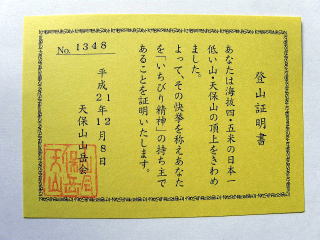 登山証明書
あなたは海抜四・五米の日本一
低い山・天保山の頂上をきわめ
ました。
よって、その快挙を称えあなた
を「いちびり精神」の持ち主で
あることを証明いたします。
平成21年12月8日
天保山山岳会
No. 1348